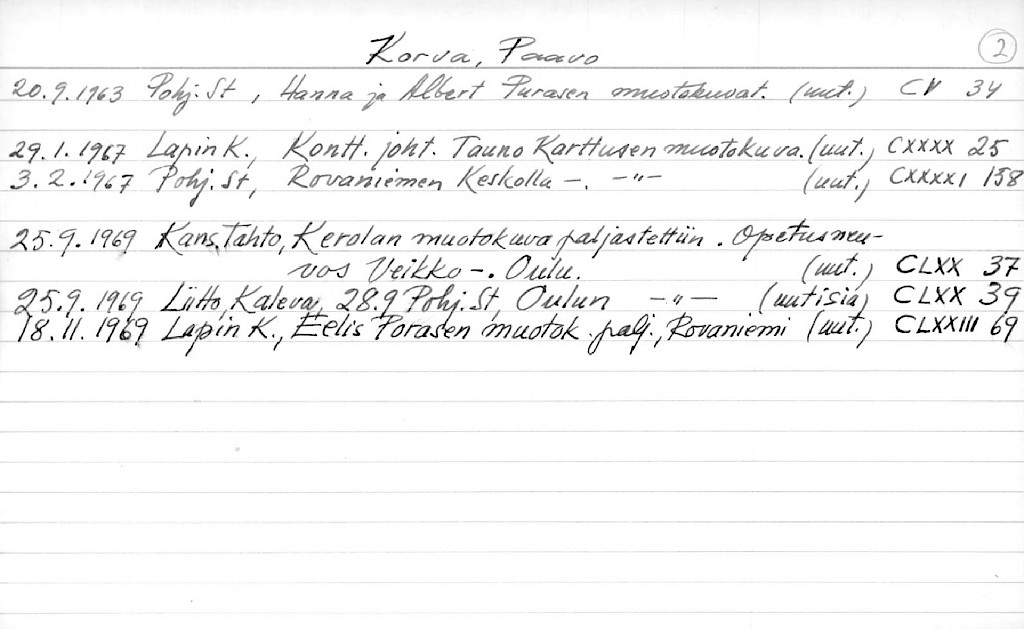 Korva, Paavo 2
20.9.1963 Pohj. St, Hanna ja Albert Purasen muotokuvat. (uut.) CV 34
29.1.1967 Lapin K., Kontt. joht. Tauno Karttusen muotokuva. (uut.) CXXXX 25
3.2.1967 Pohj. St, Rovaniemen Keskolla –. –"– (uut.) CXXXXI 158
25.9.1969 Kans. Tahto, Kerolan muotokuva paljastettiin. Opetusneu-
vos Veikko –. Oulu. (uut.) CLXX 37
25.9.1969 Liitto, Kaleva, 28.9 Pohj. St, Oulun –"– (uutisia) CLXX 39
18.11.1969 Lapin K., Eelis Porasen muotok. palj., Rovaniemi (uut.) CLXXIII 69